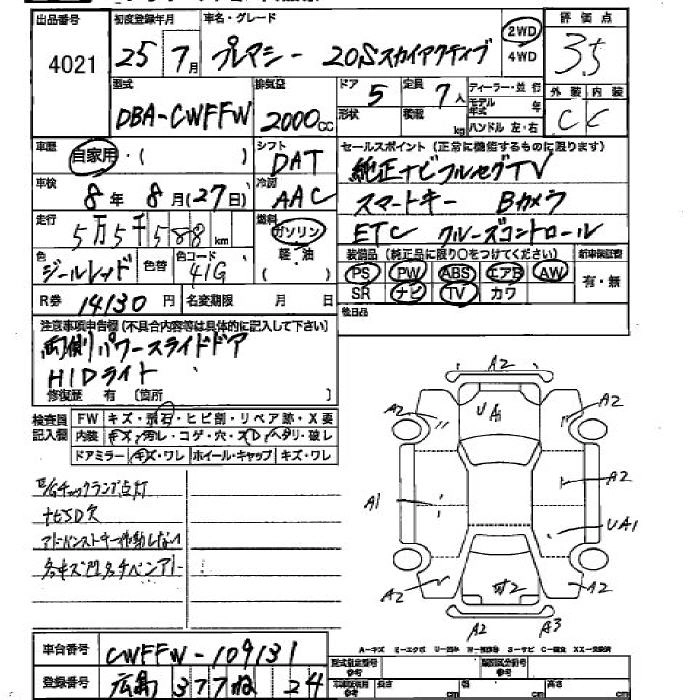 出品番号 初度登録年月 車名・グレード 2WD 評価点
4021 25 7月 プレマシー 20Sスカイアクティブ 4WD 3.5
型式 排気量 ドア 5 定員 7人 ディーラー・並行 外装 内装
DBA-CWFFW 2000cc 形状 積載 kg モデル年式 年 C C
ハンドル 左・右
車歴 自家用・( ) シフト DAT セールスポイント(正常に機能するものに限ります)
純正ナビフルセグTV
車検 8年 8月(27日) 冷房 AAC スマートキー Bカメラ
走行 5万5千588km 燃料 ガソリン ETC クルーズコントロール
軽・油
( )
色 ジールレッド 色替 色コード 41G 装備品(純正品に限り○をつけてください) 新車保証書
PS PW ABS エアB AW 有・無
R券 14130円 名変期限 月 日 SR ナビ TV カワ
後日品
注意事項申告欄(不具合内容等は具体的に記入して下さい)
両側パワースライドドア
HIDライト
修復歴 有 〔箇所 〕
検査員記入欄 FW キズ・飛石・ヒビ割・リペア跡・X要
内装 キズ・汚レ・コゲ・穴・スレ・ヘタリ・破レ
ドアミラー キズ・ワレ ホイール・キャップ キズ・ワレ
E/Gチェックランプ点灯
ナビSD欠
アドバンストキー作動しない
各キズ
A2
A2 UA1 A2
A1 A2
UA1
A2 A2
A2 A3
A-キズ
車台番号 CWFFW-109131
登録番号 広島 377 ね 24
型式指定番号 参考 類別区分番号 参考
参考 長さ cm 幅 cm 高さ cm